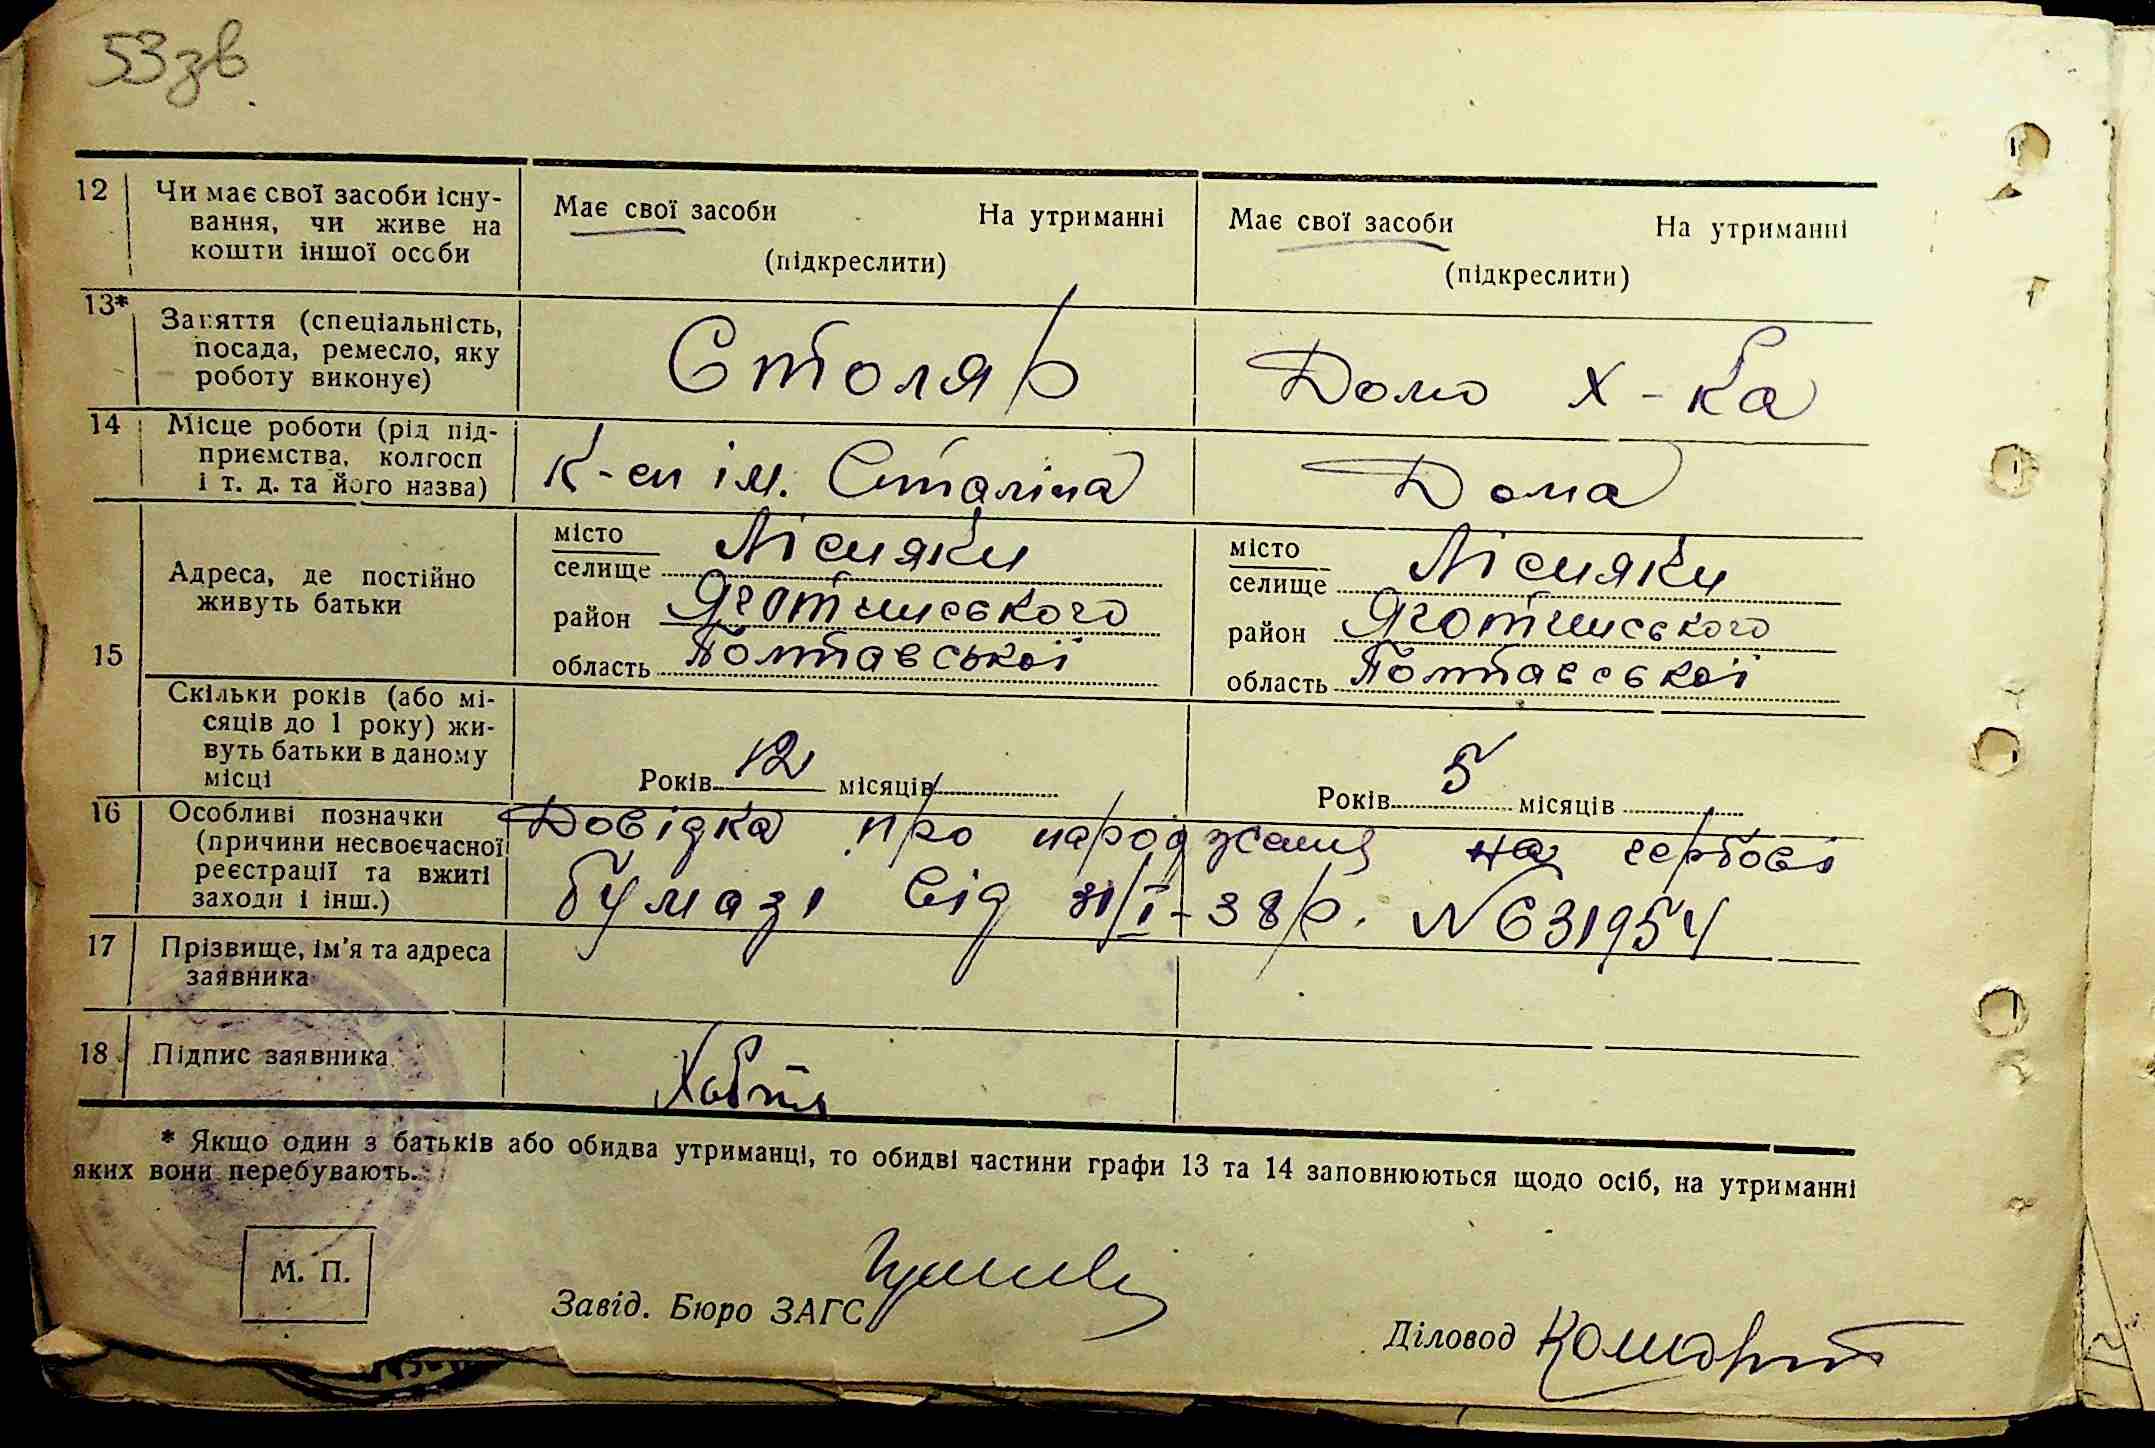 53 зв.
12 Чи має свої засоби існу-
вання, чи живе на
кошти іншої особи
Має свої засоби На утриманні
(підкреслити)
Має свої засоби На утриманні
(підкреслити)
13* Заняття (спеціальність,
посада, ремесло, яку
роботу виконує)
Столяр
Домо х-ка
14 Місце роботи (рід під-
приємства, колгосп
і т. д. та його назва)
К-сп ім. Сталіна
Дома
15 Адреса, де постійно
живуть батьки
місто
селище Лісняки
район Яготинського
область Полтавської
місто
селище Лісняки
район Яготинського
область Полтавської
Скільки років (або мі-
сяців до 1 року) жи-
вуть батьки в даному
місці
Років 12 місяців
Років 5 місяців
16 Особливі позначки
(причини несвоєчасної
реєстрації та вжиті
заходи і інш.)
Довідка про народження на гербові
бумазі від 31/I-38 р. № 631954
17 Прізвище, ім'я та адреса
заявника
18 Підпис заявника
* Якщо один з батьків або обидва утриманці, то обидві частини графи 13 та 14 заповнюються щодо осіб, на утриманні
яких вони перебувають.
М. П.
Завід. Бюро ЗАГС
Діловод